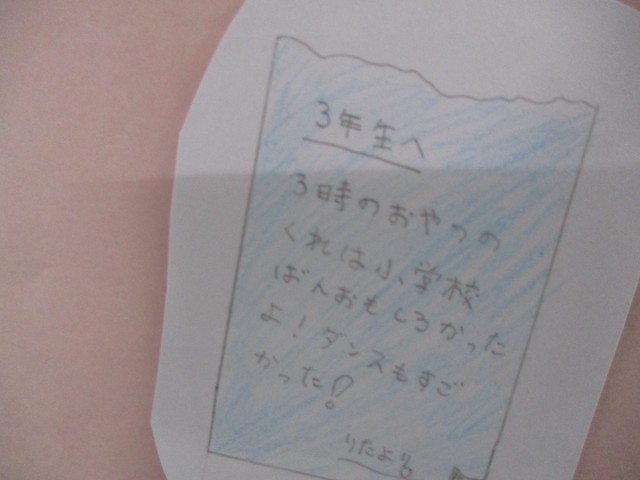 3年生へ
3時のおやつの
くれは小学校
ばんおもしろかった
よ!ダンスもすご
かった!
りたより